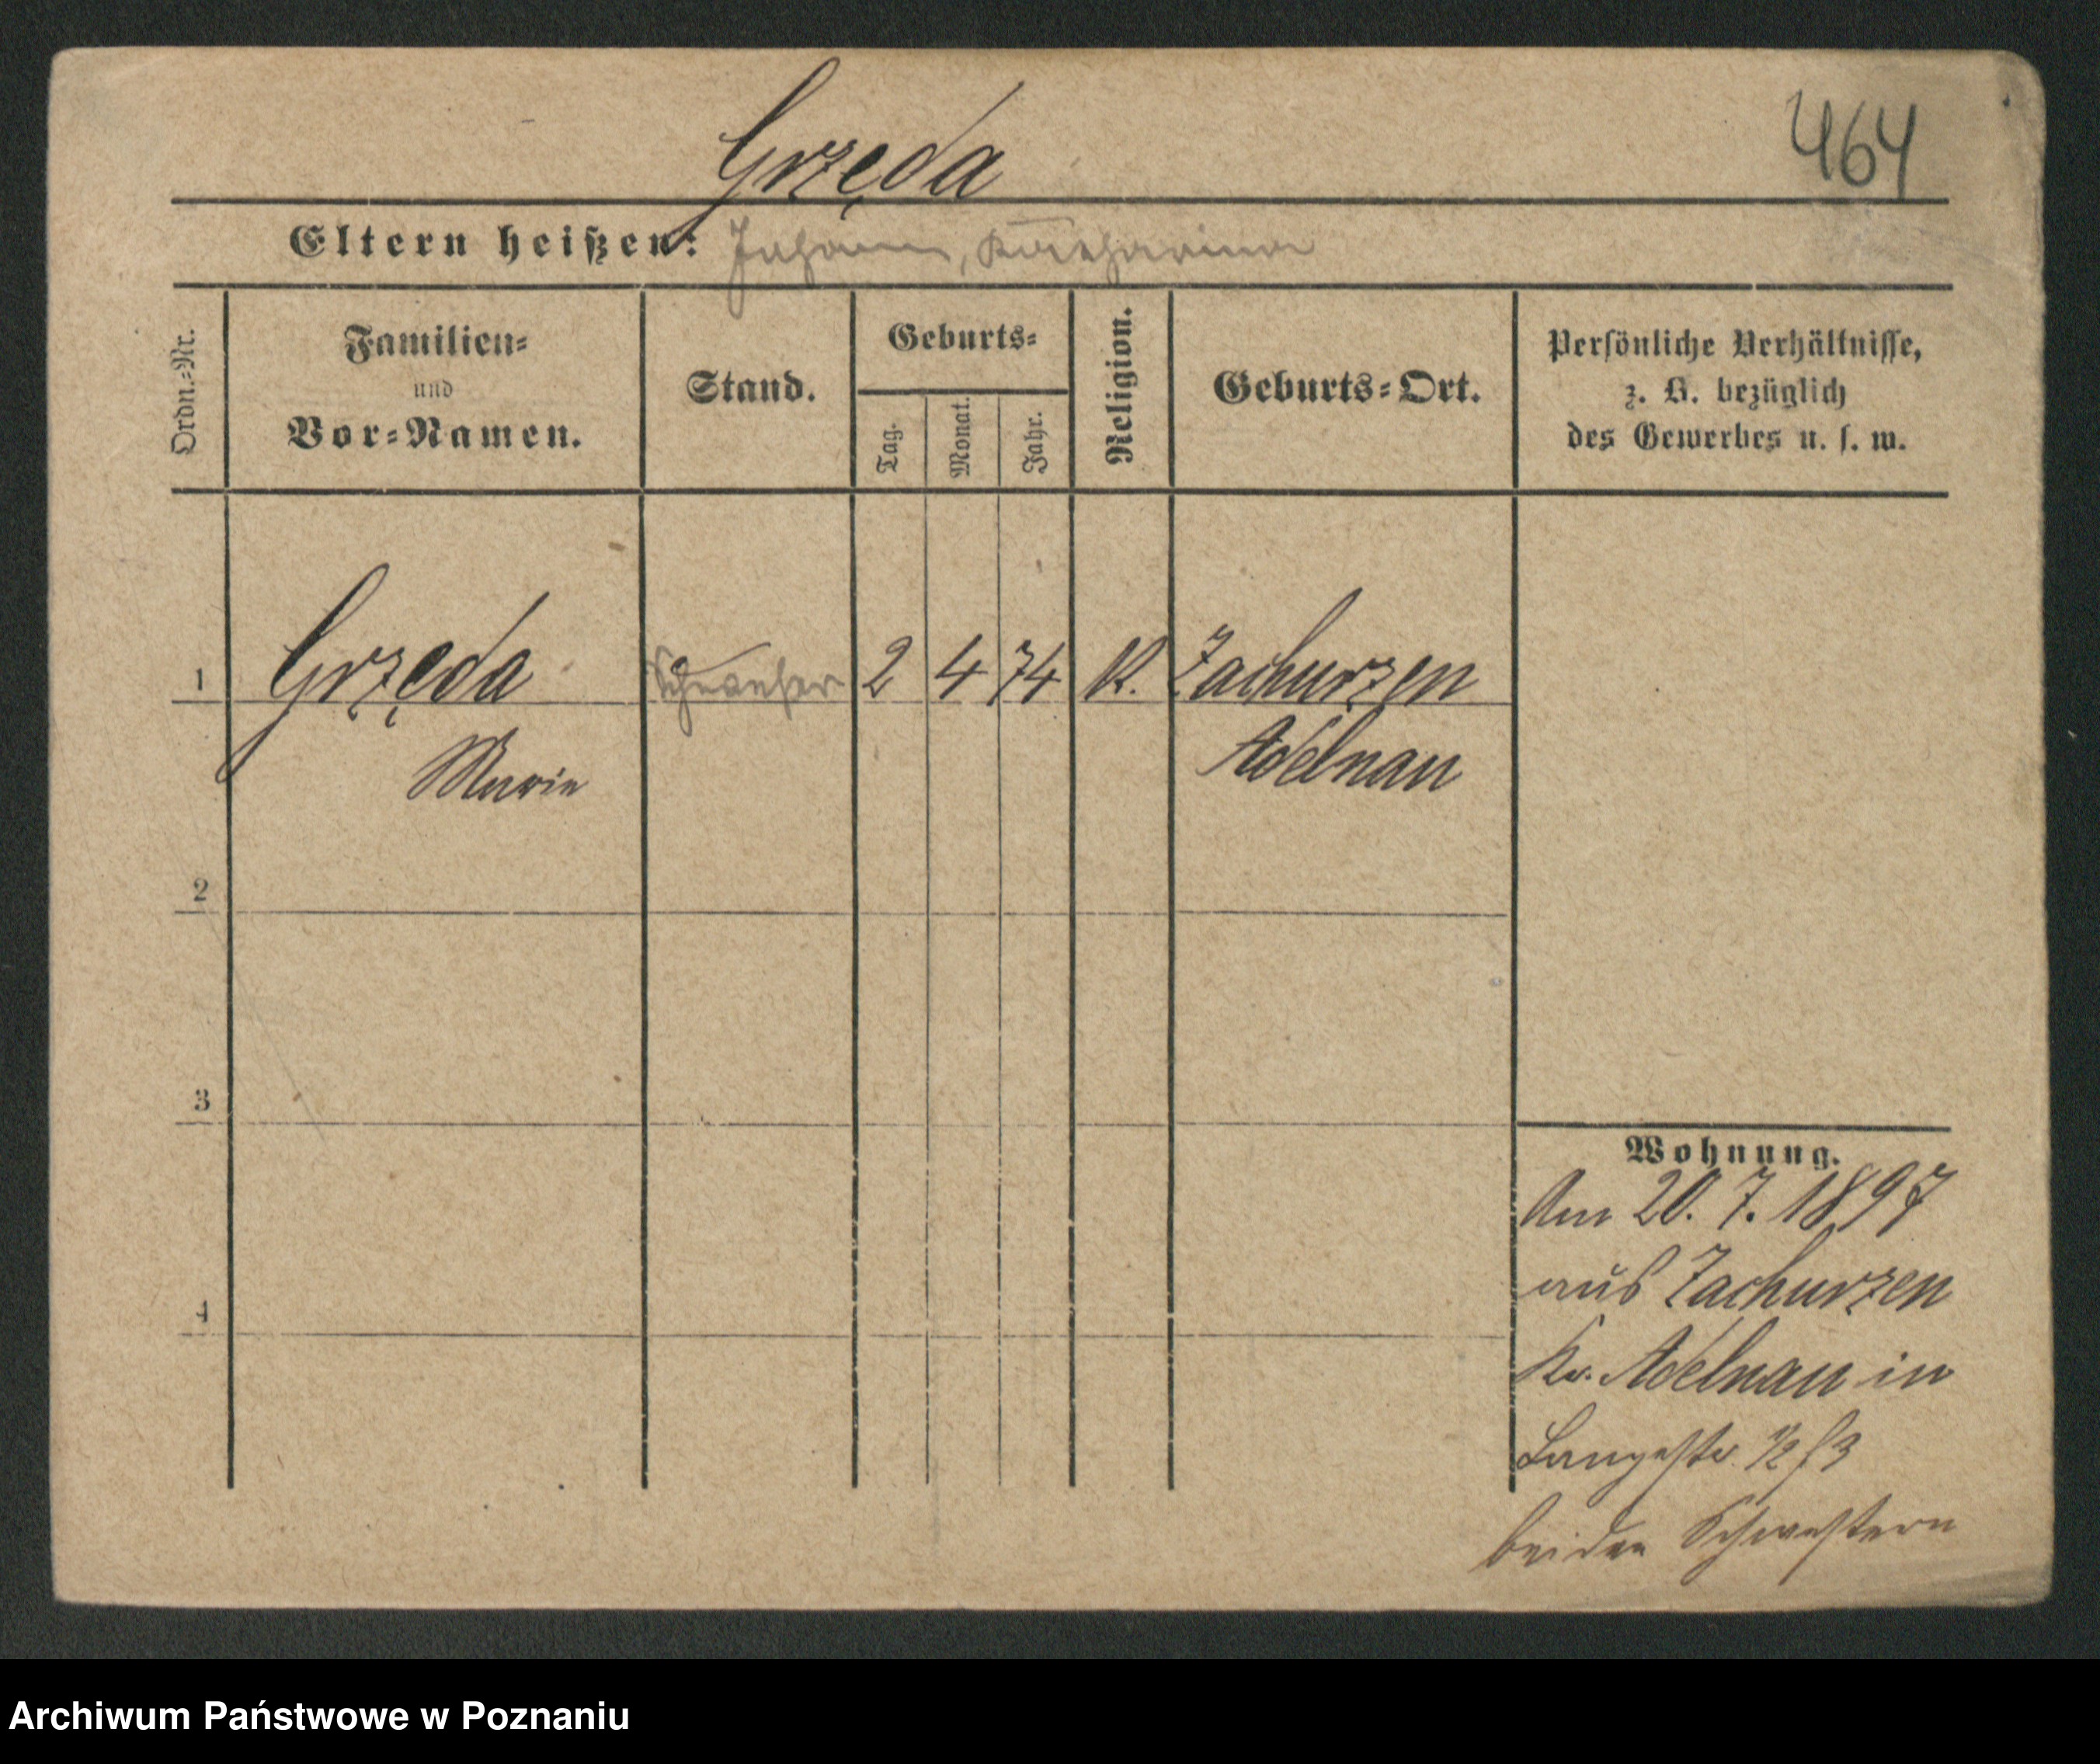 Grzęda
464
Eltern heißen: Johann, Katharina
Ordn.-Nr.
Familien-
und
Vor-Namen.
Stand.
Geburts-
Tag.
Monat.
Jahr.
Religion.
Geburts-Ort.
Persönliche Verhältnisse,
z. B. bezüglich
des Gewerbes u. s. w.
1 Grzęda 2 4 74 K. Zachurzen
Marie Adelnau
2
3
4
Wohnung.
Am 20. 7. 1897
aus Zachurzen
Kr. Adelnau in
Langestr.
bei den Schwestern
Archiwum Państwowe w Poznaniu